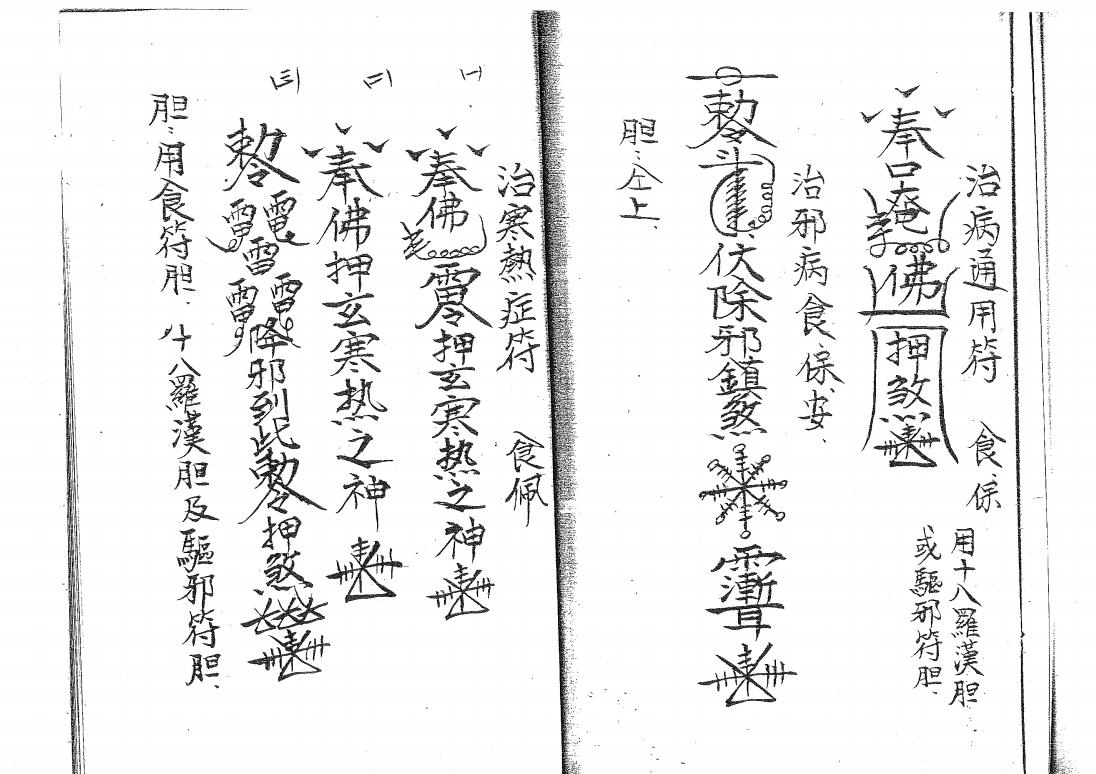 治病通用符　食、保
用十八羅漢胆
或驅邪符胆、
奉口唵佛押煞
治邪病食、保、安、
勅令斗伏除邪鎮煞
胆：仝上、
治寒熱症符　食佩
(一)
奉佛押玄寒热之神
(二)
奉佛押玄寒热之神
(三)
勅令雷電雷雷電降邪到此勅令押煞
胆：用食符胆、十八羅漢胆及驅邪符胆、